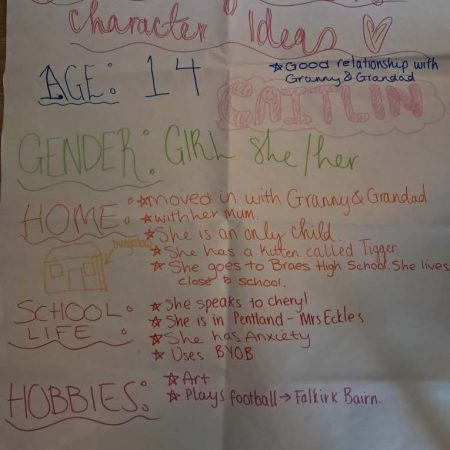 Character Ideas
AGE: 14
★Good relationship with
Granny & Grandad
CAITLIN
GENDER: GIRL She/her
HOME:
★moved in with Granny & Grandad
★with her mum.
★She is an only child.
bungalow
★She has a kitten called Tigger
★She goes to Braes High School. She lives
close to school.
SCHOOL LIFE:
★She speaks to cheryl
★She is in Pentland - Mrs Eckles
★She has Anxiety
★Uses BYOB
HOBBIES:
★Art
★Plays football → Falkirk Bairn.